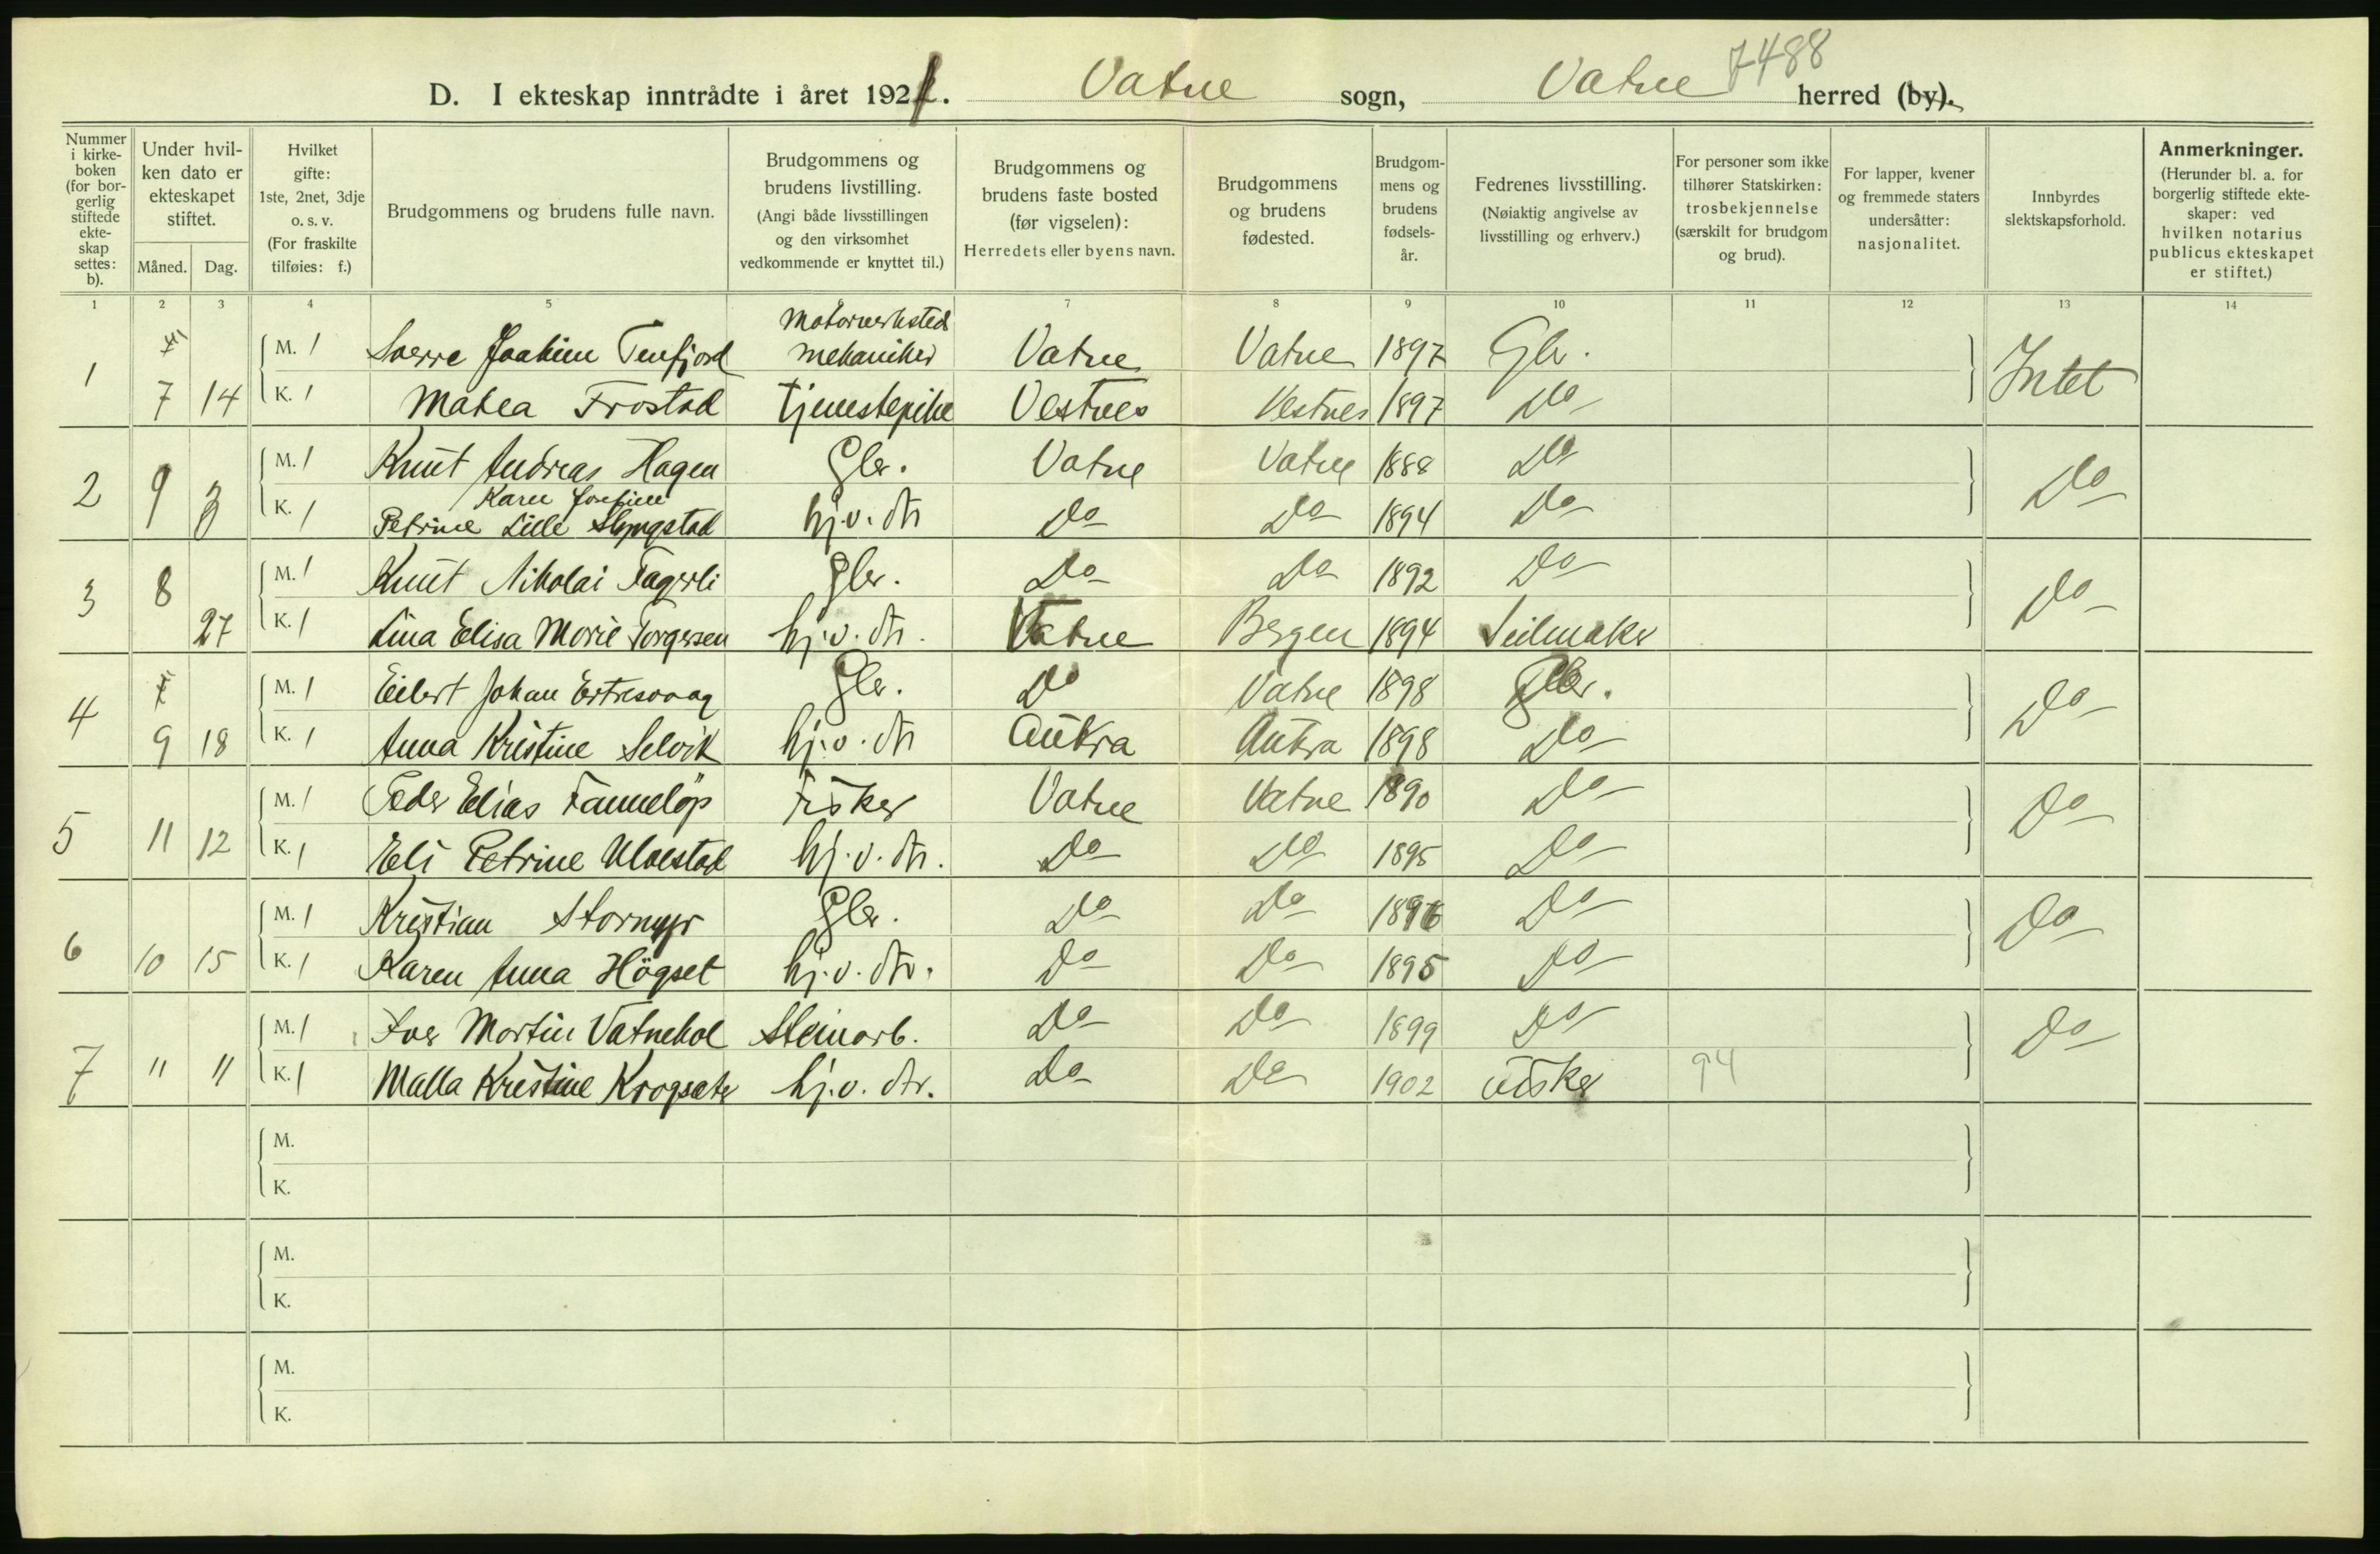 7488
D. I ekteskap inntrådte i året 1921. Vatne sogn, Vatne herred (by).
Nummer i kirkeboken (for borgerlig stiftede ekteskap settes: b).
Under hvilken dato er ekteskapet stiftet.
Måned. Dag.
Hvilket gifte: 1ste, 2net, 3dje o. s. v. (For fraskilte tilføies: f.)
Brudgommens og brudens fulle navn.
Brudgommens og brudens livstilling. (Angi både livsstillingen og den virksomhet vedkommende er knyttet til.)
Brudgommens og brudens faste bosted (før vigselen): Herredets eller byens navn.
Brudgommens og brudens fødested.
Brudgommens og brudens fødselsår.
Fedrenes livsstilling. (Nøiaktig angivelse av livsstilling og erhverv.)
For personer som ikke tilhører Statskirken: trosbekjennelse (særskilt for brudgom og brud).
For lapper, kvener og fremmede staters undersåtter: nasjonalitet.
Innbyrdes slektskapsforhold.
Anmerkninger. (Herunder bl. a. for borgerlig stiftede ekteskaper: ved hvilken notarius publicus ekteskapet er stiftet.)
1 2 3 4 5 7 8 9 10 11 12 13 14
Motorverksted
1 M. 1 Sverre Joakim Tenfjord mekaniker Vatne Vatne 1897 Gbr. Intet
7 14 K. 1 Matea Frostad Tjenestepike Vestnes Vestnes 1897 Do
2 9 3 M. 1 Knut Andreas Hagen Gbr. Vatne Vatne 1888 Do Do
Karen Josefine
K. 1 Petrine Lille Slyngstad hj.v. dtr Do Do 1894 Do
3 8 M. 1 Knut Nikolai Fagerli Gbr. Do Do 1892 Do Do
27 K. 1 Lina Elisa Marie Torgersen hj.v. dtr. Vatne Bergen 1894 Seilmaker
4 M. 1 Eilert Johan Ertresvaag Gbr. Do Vatne 1898 Gbr. Do
9 18 K. 1 Anna Kristine Selvik hj.v. dtr Aukra Aukra 1898 Do
5 11 12 M. 1 Peder Elias Fannelöp Fisker Vatne Vatne 1890 Do Do
K. 1 Eli Petrine Ulvestad hj.v. dtr. Do Do 1895 Do
6 M. 1 Kristian Stormyr Gbr. Do Do 1896 Do Do
10 15 K. 1 Karen Anna Högset hj.v. dtr. Do Do 1895 Do
7 " " M. 1 Iver Martin Vatnehol Steinarb. Do Do 1899 Do Do
K. 1 Malla Kristine Krogsæter hj.v. dtr. Do Do 1902 Fisker 94
M.
K.
M.
K.
M.
K.